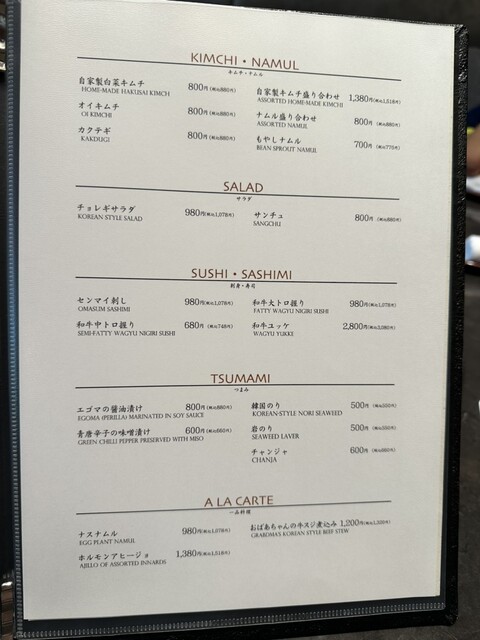 KIMCHI・NAMUL
キムチ・ナムル
自家製白菜キムチ 800円(税込880円)
HOME-MADE HAKUSAI KIMCH
オイキムチ 800円(税込880円)
OI KIMCHI
カクテギ 800円(税込880円)
KAKDUGI
自家製キムチ盛り合わせ 1,380円(税込1,518円)
ASSORTED HOME-MADE KIMCHI
ナムル盛り合わせ 800円(税込880円)
ASSORTED NAMUL
もやしナムル 700円(税込770円)
BEAN SPROUT NAMUL
SALAD
サラダ
チョレギサラダ 980円(税込1,078円)
KOREAN STYLE SALAD
サンチュ 800円(税込880円)
SANGCHU
SUSHI・SASHIMI
刺身・寿司
センマイ刺し 980円(税込1,078円)
OMASUM SASHIMI
和牛中トロ握り 680円(税込748円)
SEMI-FATTY WAGYU NIGIRI SUSHI
和牛大トロ握り 980円(税込1,078円)
FATTY WAGYU NIGIRI SUSHI
和牛ユッケ 2,800円(税込3,080円)
WAGYU YUKKE
TSUMAMI
つまみ
エゴマの醤油漬け 800円(税込880円)
EGOMA (PERILLA) MARINATED IN SOY SAUCE
青唐辛子の味噌漬け 600円(税込660円)
GREEN CHILLI PEPPER PRESERVED WITH MISO
韓国のり 500円(税込550円)
KOREAN-STYLE NORI SEAWEED
岩のり 500円(税込550円)
SEAWEED LAVER
チャンジャ 600円(税込660円)
CHANJA
A LA CARTE
一品料理
ナスナムル 980円(税込1,078円)
EGG PLANT NAMUL
ホルモンアヒージョ 1,380円(税込1,518円)
AJILLO OF ASSORTED INNARDS
おばあちゃんの牛スジ煮込み 1,200円(税込1,320円)
GRABDMA'S KOREAN STYLE BEEF STEW